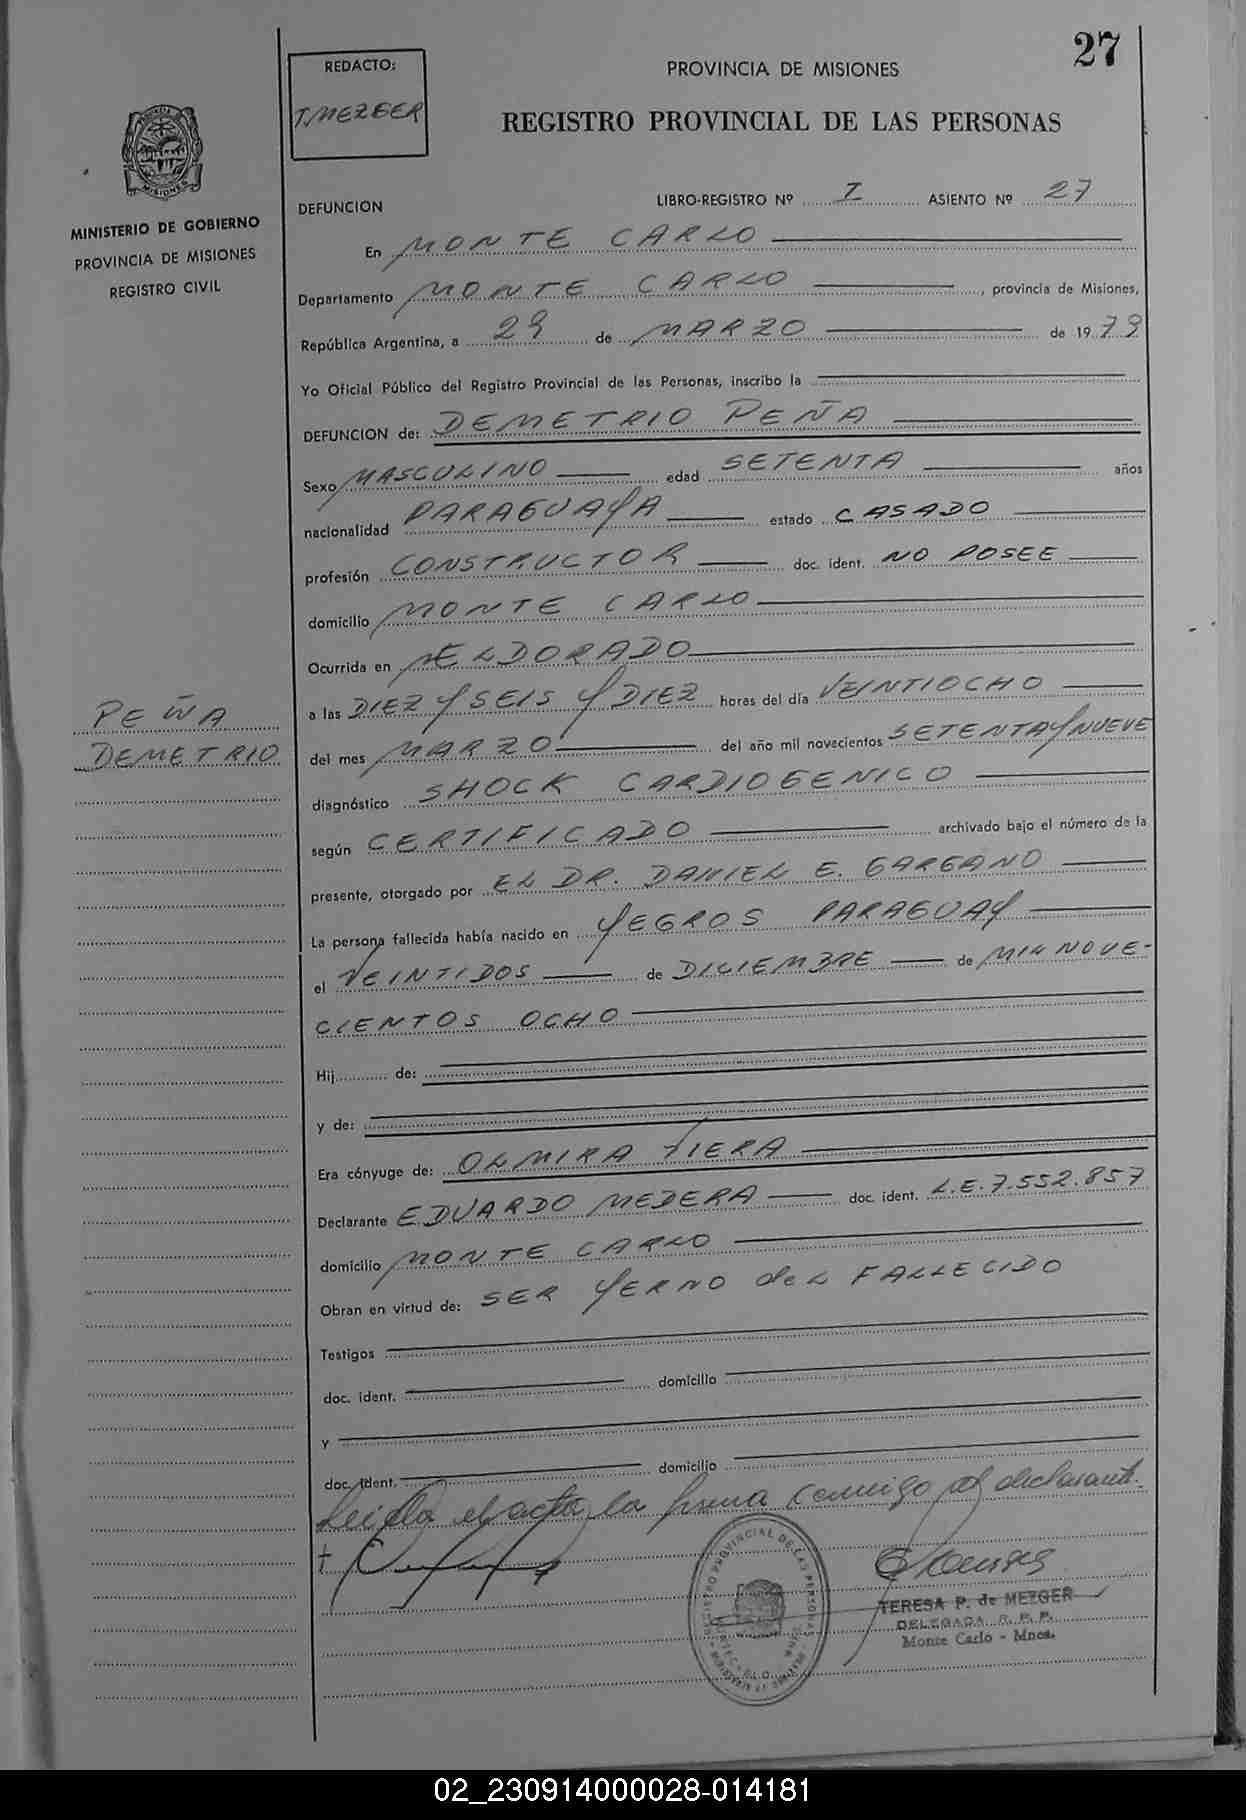 27
REDACTO:
T. MEZGER
PROVINCIA DE MISIONES
REGISTRO PROVINCIAL DE LAS PERSONAS
MISIONES
MINISTERIO DE GOBIERNO
PROVINCIA DE MISIONES
REGISTRO CIVIL
DEFUNCION LIBRO-REGISTRO Nº I ASIENTO Nº 27
En MONTE CARLO
Departamento MONTE CARLO, provincia de Misiones,
República Argentina, a 29 de MARZO de 1979
Yo Oficial Público del Registro Provincial de las Personas, inscribo la
DEFUNCION de: DEMETRIO PEÑA
Sexo MASCULINO edad SETENTA años
nacionalidad PARAGUAYA estado CASADO
profesión CONSTRUCTOR doc. ident. NO POSEE
domicilio MONTE CARLO
Ocurrida en ELDORADO
PEÑA
DEMETRIO
a las DIEZ Y SEIS Y DIEZ horas del día VEINTIOCHO
del mes MARZO del año mil novecientos SETENTA Y NUEVE
diagnóstico SHOCK CARDIOGENICO
según CERTIFICADO archivado bajo el número de la
presente, otorgado por EL DR. DANIEL E. GARGANO
La persona fallecida había nacido en YEGROS PARAGUAY
el VEINTIDOS de DICIEMBRE de MIL NOVE-
CIENTOS OCHO
Hij de:
y de:
Era cónyuge de: OLMIRA FIERA
Declarante EDUARDO MEDERA doc. ident. L.E. 7.552.857
domicilio MONTE CARLO
Obran en virtud de: SER YERNO del FALLECIDO
Testigos
doc. ident. domicilio
y
doc. ident. domicilio
Leida el acta, la firma conmigo el declarante.
TERESA P. de MEZGER
DELEGADA R. P. P.
Monte Carlo - Mnes.
02_230914000028-014181